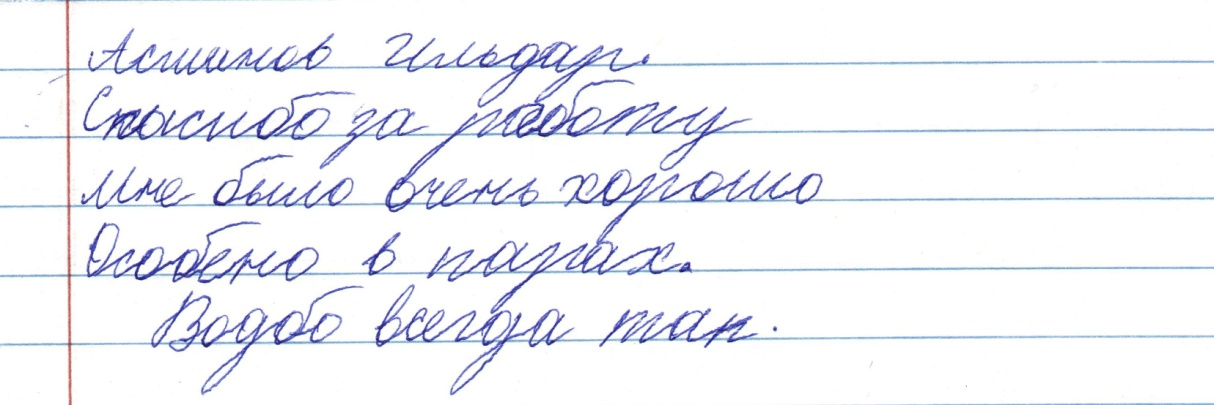 Асминов Ильдар.
Спасибо за работу
Мне было очень хорошо
Особено в парах.
Водоб всегда так.